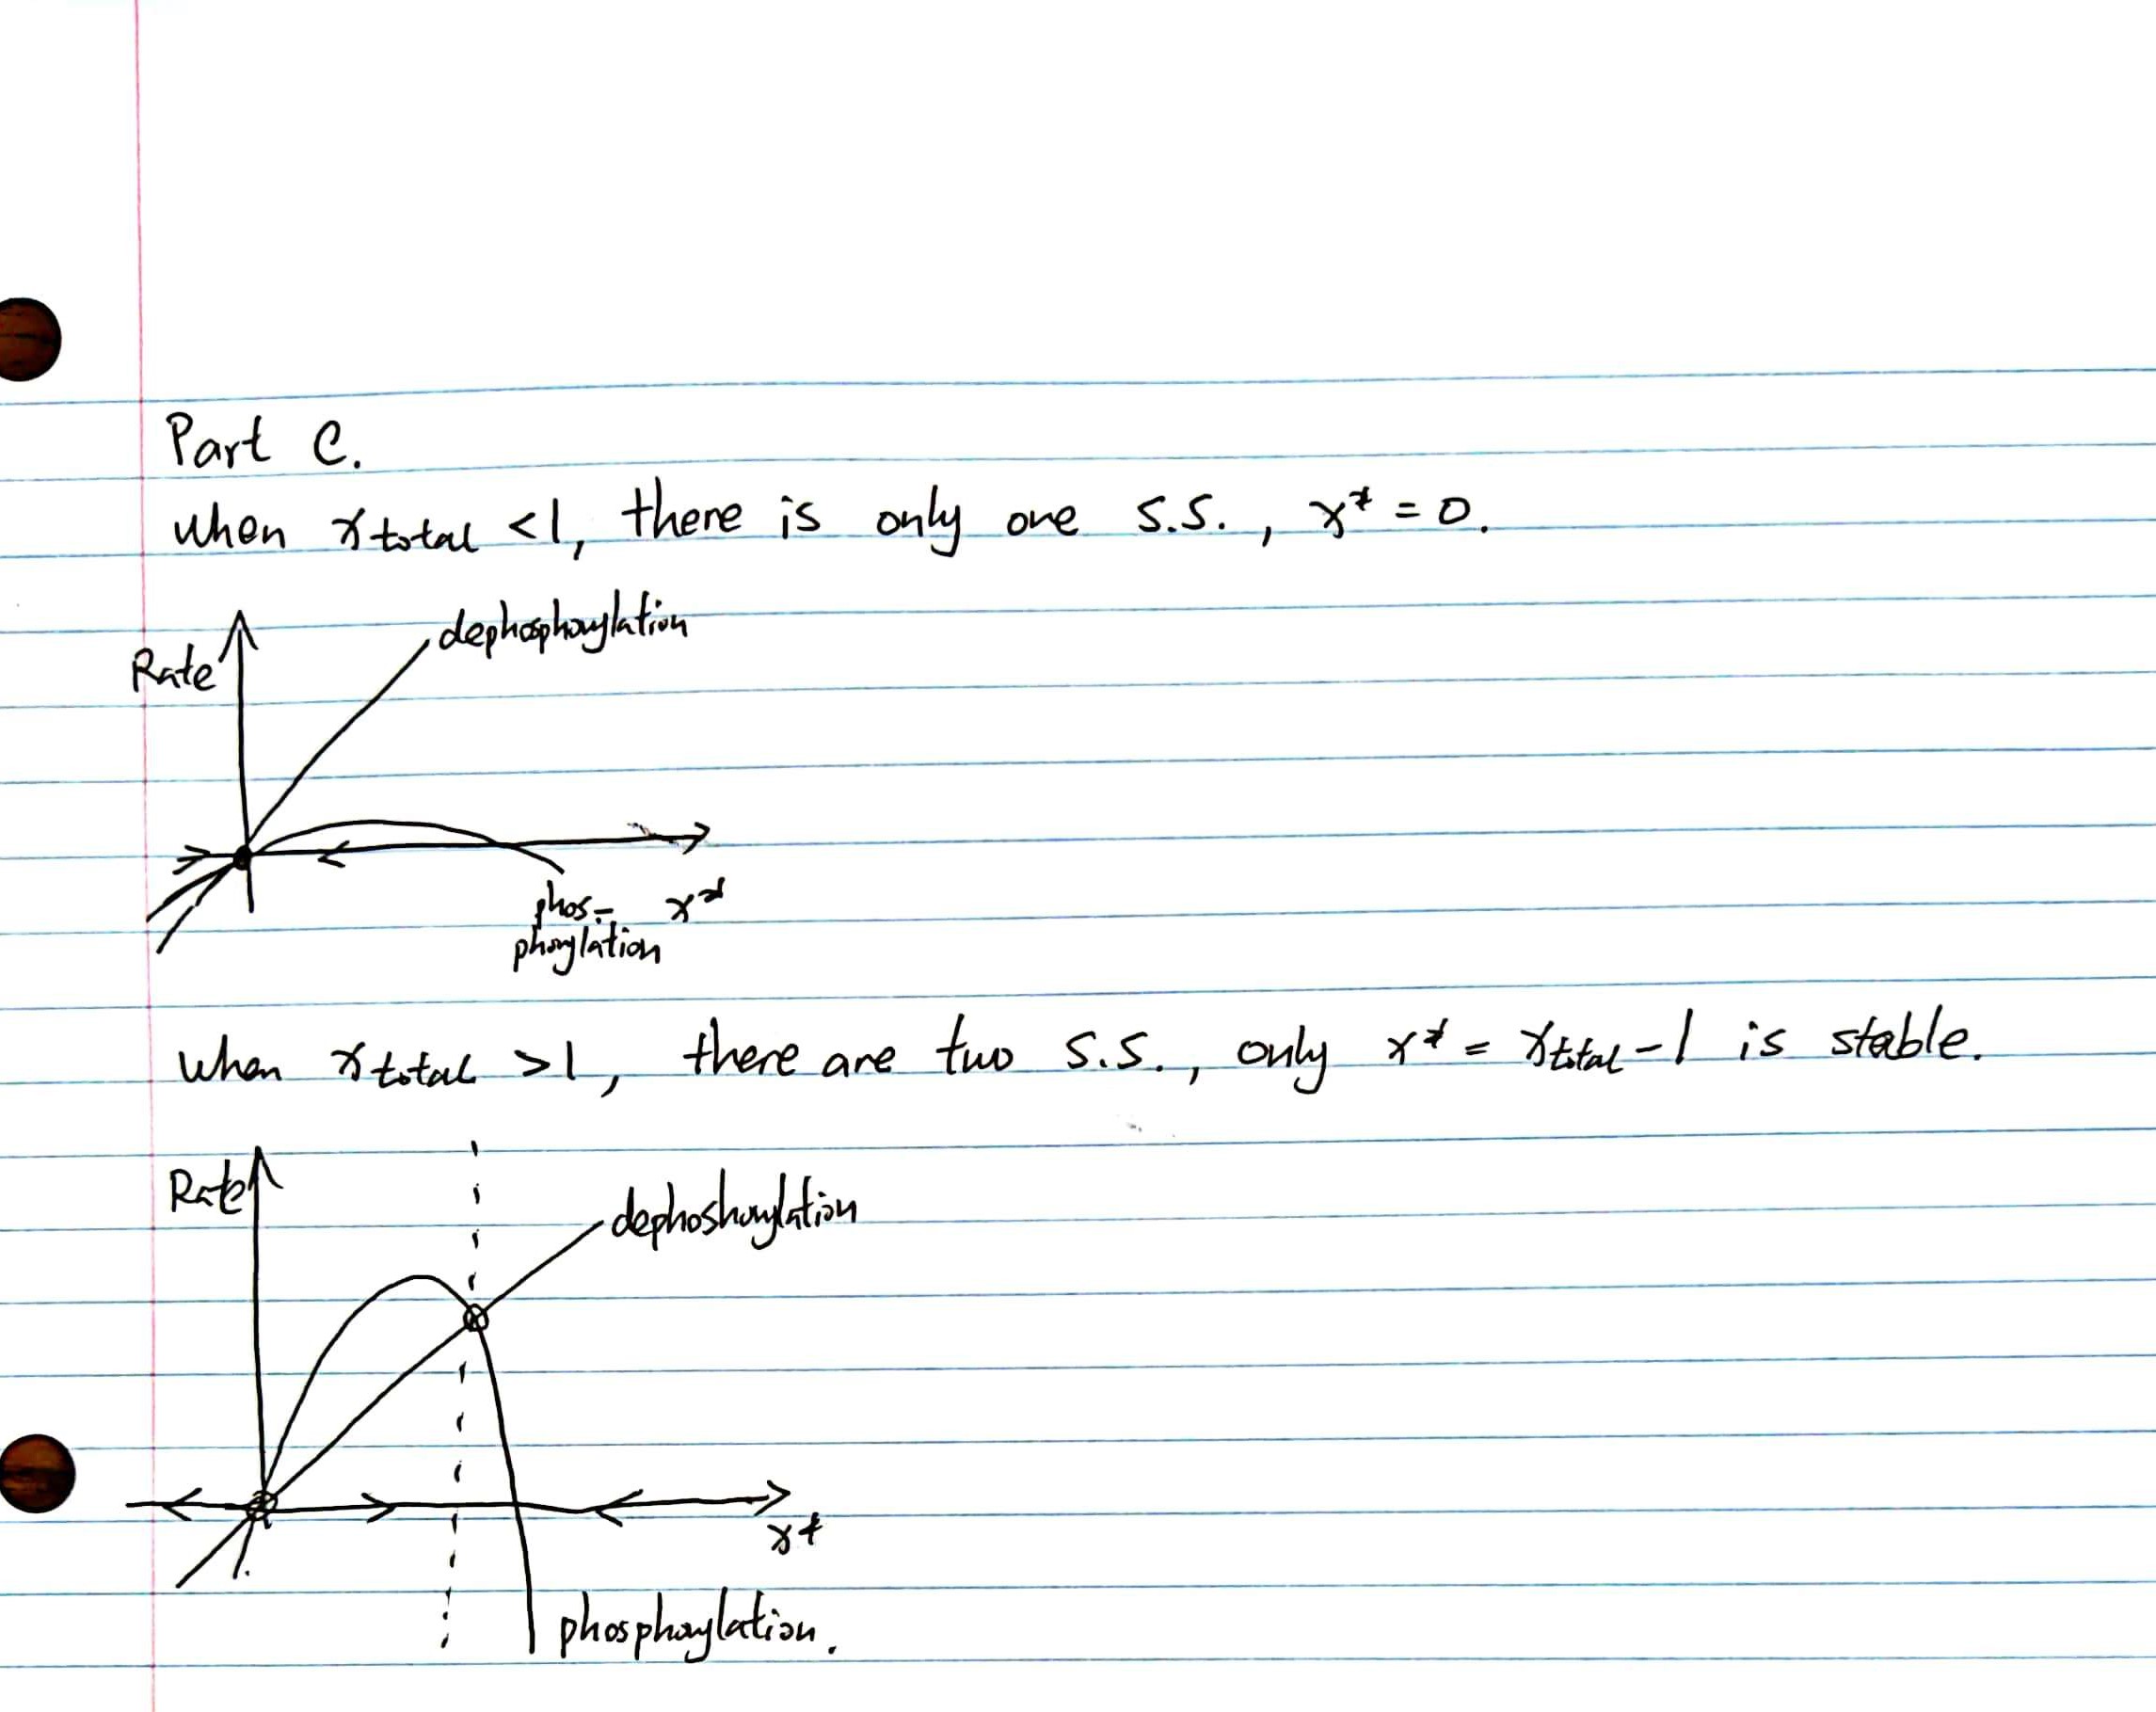 Part C.
When x total <1, there is only one s.s., x* = 0.
dephosphorylation
Rate
phos-
x*
phorylation
When x total >1, there are two s.s., only x* = x total -1 is stable.
Rate
dephoshorylation
x*
phosphorylation.